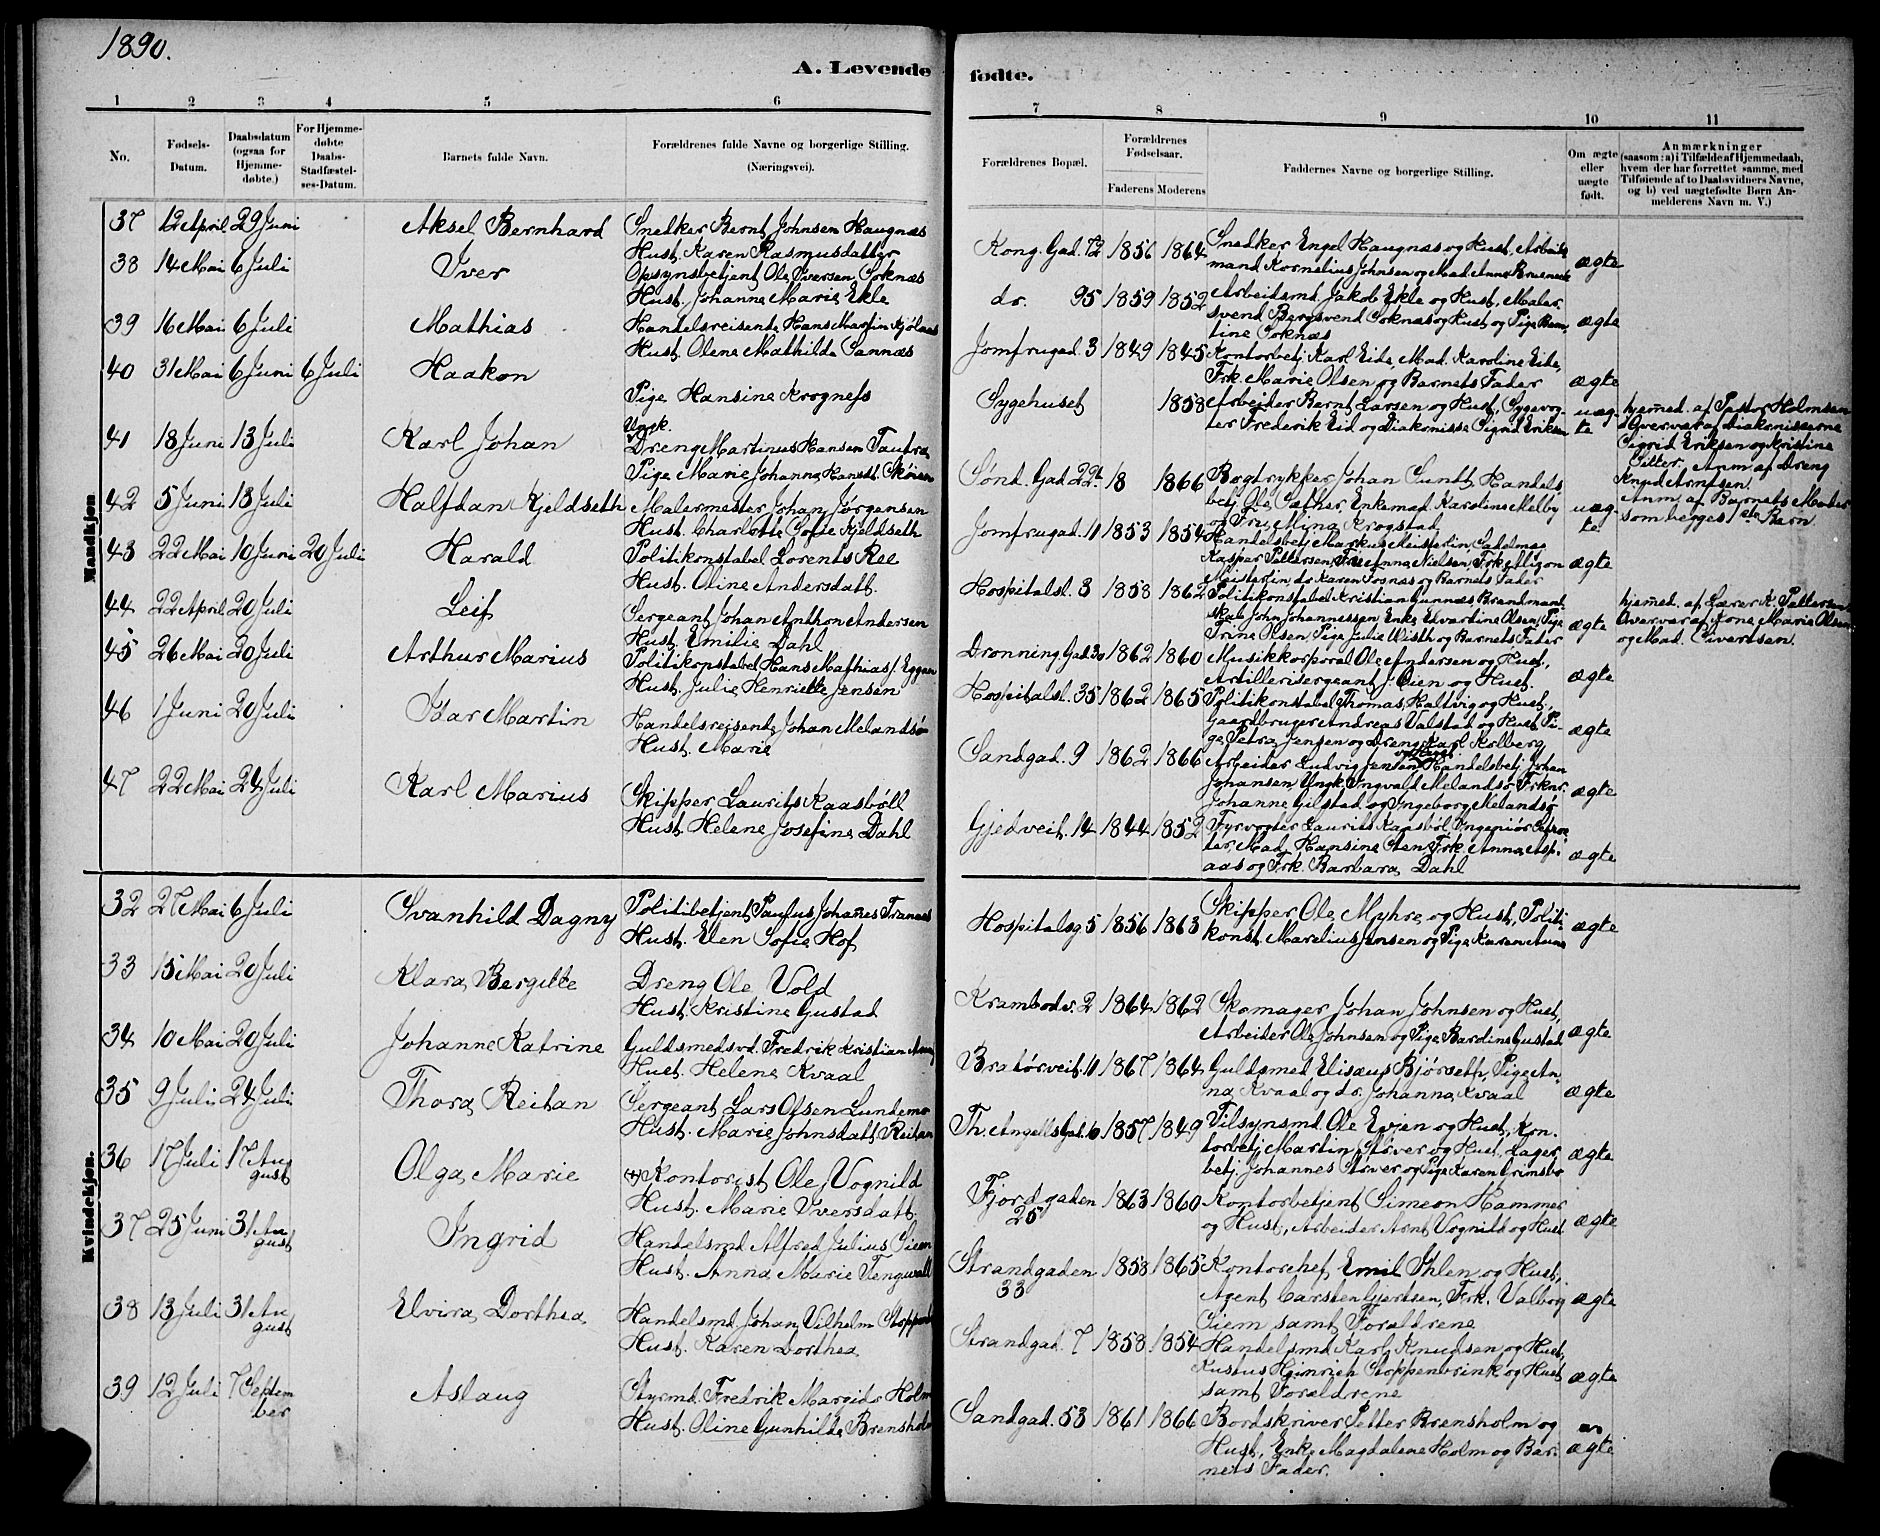 1890.
A. Levende fødte.
1 2 3 4 5 6 7 8 9 10 11
No.
Fødsels-Datum.
Daabsdatum (ogsaa for Hjemme-døbte.)
For Hjemme-døbte Daabs-Stadfæstel-ses-Datum.
Barnets fulde Navn.
Forældrenes fulde Navne og borgerlige Stilling. (Næringsvei).
Forældrenes Bopæl.
Forældrenes Fødselsaar.
Faderens Moderens
Faddernes Navne og borgerlige Stilling.
Om ægte eller uægte født.
Anmærkninger
(saasom: a) i Tilfælde af Hjemmedaab,
hvem der har forrettet samme, med
Tilføiende af to Daabsvidners Navne,
og b) ved uægtefødte Børn An-
melderens Navn m. V.)
Mandkjøn
37 12 April 29 Juni Aksel Bernhard
Snedker Bernt Johnsen Haugnæs
Hust. Karen Rasmusdatter
Kong. Gad. 72 1856 1864
Snedker Engel Haugnæs og Hust, Arbeids
mand Kornelius Johnsen og Mad. Anna
ægte
38 14 Mai 6 Juli Iver
Opsynsbetjent Ole Iversen Soknæs
Hust. Johanna Marie Ekle
do. 95 1859 1852
Arbeidsmd. Jakob Ekle og Hust, Maler
svend Bergsvend Soknæs og Hust og Pige
tine Soknæs
ægte
39 16 Mai 6 Juli Mathias
Handelsreisende Hans Martin
Hust. Olene Mathilde Sannæs
Jomfrugad. 3 1849 1845
Kontorbetj. Karl Eide, Mad. Karoline Eide,
Frk. Marie Olsen og Barnets Fader
ægte
40 31 Mai 6 Juni 6 Juli Haakon
Pige Hansine Krogness
Sygehuset 1858
Arbeider Bernt Larsen og Hust, Sygevog-
ter Frederik Eid og Diakonisse Sigrid Eriksen
uæg-
te
hjemed. af Pastor Holmsen
i Overvær af Diakonisserne
Sigrid Eriksen og Kristine
Sitter. Anm. af Dreng
Knud Arntsen.
41 18 Juni 13 Juli Karl Johan
Ungk.
Dreng Martinus Hansen Tautra
Pige Marie Johanna Hansdt. Skøien
Sønd. Gad. 22 b 18 1866
Bogtrykker Johan Sundt, Handels
betj. Ole Sæther, Enkemad. Karoline Melby
og Fru Mina Krogstad
uæg-
te
Anm. af Barnets Moder
som begges 1ste Barn.
42 5 Juni 13 Juli Halfdan Kjeldseth
Malermester Johan Jørgensen
Hust. Charlotte Sofie Kjeldseth
Jomfrugad. 11 1853 1854
Handelsbetj. Markus Meisterlin, Sadelmag
Kaspar Pettersen, Frk. Anna Nielsen, Frk.
Meisterlin, do. Karen Fosnæs og Barnets Fader
ægte
43 22 Mai 10 Juni 20 Juli Harald
Politikonstabel Lorents Ree
Hust. Oline Andersdatt.
Hospitalsl. 3 1858 1862
Politikonstabel Kristian Gunnæs, Brandmand-
skab John Johannessen, Enke Edvardine Olsen, Pige
Trine Olsen, Pige Julie Wisth og Barnets Fader
ægte
hjemed. af Lærer K. Pettersen
i Overvær af Jone Marie Olsen
og Mad. Sivertsen.
44 22 April 20 Juli Leif
Sergeant Johan Anthon Andersen
Hust. Emilie Dahl
Dronning. Gad. 30 1862 1860
Musikkorporal Ole Andersen og Hust,
Artillerisergeant J. Øien og Hust.
ægte
45 26 Mai 20 Juli Arthur Marius
Politikonstabel Hans Mathias J. Eggen
Hust. Julie Henriette Jensen
Hospitalsl. 35 1862 1865
Politikonstabel Thomas Haltvig og Hust,
Gaardbruger Andreas Valstad og Hust Pi-
ge Petra Jensen og Dreng Karl Kolberg
ægte
46 1 Juni 20 Juli Idar Martin
Handelsreisende Johan Melandsø
Hust. Marie
Sandgad. 9 1862 1866
Arbeider Ludvig Jensen og Hust, Handelsbetj. Johan
Johansen, Ungk. Ingvald Melandsø, Frknr.
Johanne Gilstad og Ingeborg Melandsø
ægte
47 22 Mai 24 Juli Karl Marius
Skipper Laurits Kaasbøll
Hust. Helene Josefine Dahl
Gjedveit. 14 1844 1852
Fyrvogter Laurits Kaasbøl, Ingeniør
ter Mad. Hansine Sten, Frk. Anna Asp-
aas og Frk. Barbara Dahl
ægte
Kvindekjøn.
32 27 Mai 6 Juli Svanhild Dagny
Politibetjent Paulus Johanes Tranaas
Hust. Elen Sofie Hof
Hospitalsg 5 1856 1863
Skipper Ole Myhre og Hust, Politi-
konst. Marelius Jensen og Pige Karen Aune
ægte
33 15 Mai 20 Juli Klara Bergitte
Dreng Ole Vold
Hust. Kristine Gustad
Krambodv. 2 1864 1862
Skomager Johan Johnsen og Hust,
Arbeider Ole Johnsen og Pige Bardine Gustad
ægte
34 10 Mai 20 Juli Johanne Katrine
Guldsmedsvd. Fredrik Kristian
Hust. Helena Kvaal
Bratørveit. 11 1867 1864
Guldsmed Elisæus Bjørseth, Pige An-
na Kvaal og do. Johanna Kvaal
ægte
35 9 Juli 24 Juli Thora Reitan
Sergeant Lars Olsen Lundemo
Hust. Marie Johnsdatt. Reitan
Th. Angells Gad. 10 1857 1849
Tilsynsmd. Ole Evjen og Hust, Kon-
torbetj. Martin Støver og Hust, Lager
betj. Johannes Støver og Pige Karen Grimsbo
ægte
36 17 Juli 17 August Olga Marie
Kontorist Ole Vognild
Hust. Marie Iversdatt.
Fjordgaden 25 1863 1860
Kontorbetjent Simeon Hammer
og Hust, Arbeider Arnt Vognild og Hust
ægte
37 25 Juni 31 August Ingrid
Handelsmd. Alfred Julius Siem
Hust. Anna Marie Tengwall
Strandgaden 33 1858 1865
Kontorchef Emil Ihlen og Hust,
Agent Carsten Gjertsen, Frk. Valborg
Siem samt Forældrene
ægte
38 13 Juli 31 August Elvira Dorthea
Handelsmd. Johan Vilhelm
Hust. Karen Dorthea
Strandgad. 7 1858 1854
Handelsmd. Karl Knudsen og Hust,
Kustus Heinrich Stoppenbrink og Hust
samt Forældrene
ægte
39 12 Juli 7 September Aslaug
Styrmd. Fredrik Margido Holm
Hust. Oline Gunhilda Brensholm
Sandgad. 53 1861 1866
Bordskriver Petter Brensholm og
Hust, Enke Magdalene Holm og Bar-
nets Fader.
ægte